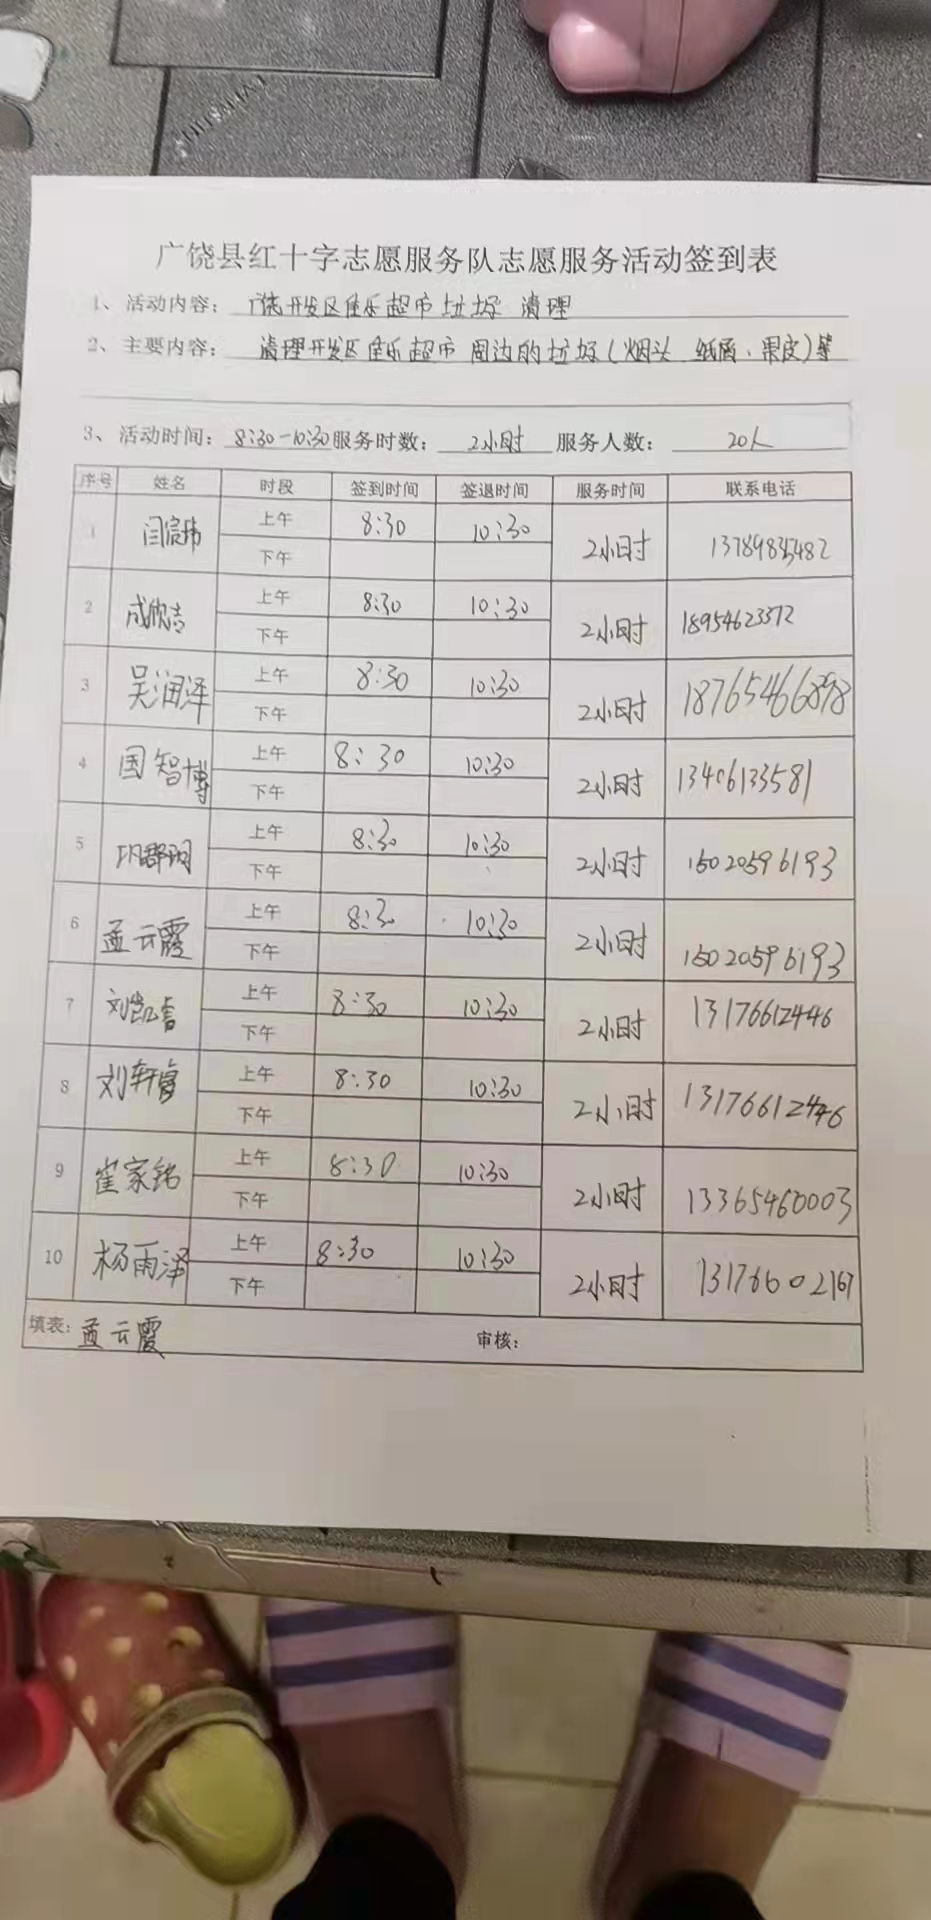 广饶县红十字志愿服务队志愿服务活动签到表
1、活动内容：广饶开发区佳乐超市垃圾 清理
2、主要内容：清理开发区佳乐超市周边的垃圾(烟头、纸屑、果皮)等
3、活动时间：8:30-10:30服务时数：2小时 服务人数：20人
序号 姓名 时段 签到时间 签退时间 服务时间 联系电话
1 闫宸玮 上午 8:30 10:30 2小时 13789835482
下午
2 成欣洁 上午 8:30 10:30 2小时 18954623372
下午
3 吴润泽 上午 8:30 10:30 2小时
下午
4 国智博 上午 8:30 10:30 2小时 13406133581
下午
5 上午 8:30 10:30 2小时 15020596193
下午
6 孟云霞 上午 8:30 10:30 2小时 15020596193
下午
7 刘凯睿 上午 8:30 10:30 2小时 13176612446
下午
8 刘轩睿 上午 8:30 10:30 2小时 13176612446
下午
9 崔家铭 上午 8:30 10:30 2小时 13365460003
下午
10 杨雨泽 上午 8:30 10:30 2小时 13176602167
下午
填表：孟云霞 审核：